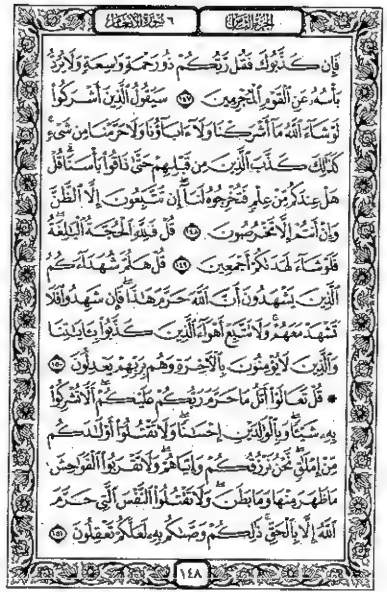 الجزء الثامن ٦ سورة الأنعام
فَإِن كَذَّبُوكَ فَقُل رَّبُّكُمْ ذُو رَحْمَةٍ وَاسِعَةٍ وَلَا يُرَدُّ
بَأْسُهُ عَنِ الْقَوْمِ الْمُجْرِمِينَ ١٤٧ سَيَقُولُ الَّذِينَ أَشْرَكُوا
لَوْ شَاءَ اللَّهُ مَا أَشْرَكْنَا وَلَا ءَابَاؤُنَا وَلَا حَرَّمْنَا مِن شَيْءٍ
كَذَٰلِكَ كَذَّبَ الَّذِينَ مِن قَبْلِهِمْ حَتَّىٰ ذَاقُوا بَأْسَنَا قُلْ
هَلْ عِندَكُم مِّنْ عِلْمٍ فَتُخْرِجُوهُ لَنَا إِن تَتَّبِعُونَ إِلَّا الظَّنَّ
وَإِنْ أَنتُمْ إِلَّا تَخْرُصُونَ ١٤٨ قُلْ فَلِلَّهِ الْحُجَّةُ الْبَالِغَةُ
فَلَوْ شَاءَ لَهَدَىٰكُمْ أَجْمَعِينَ ١٤٩ قُلْ هَلُمَّ شُهَدَاءَكُمُ
الَّذِينَ يَشْهَدُونَ أَنَّ اللَّهَ حَرَّمَ هَٰذَا فَإِن شَهِدُوا فَلَا
تَشْهَدْ مَعَهُمْ وَلَا تَتَّبِعْ أَهْوَاءَ الَّذِينَ كَذَّبُوا بِـَٔايَٰتِنَا
وَالَّذِينَ لَا يُؤْمِنُونَ بِالْءَاخِرَةِ وَهُم بِرَبِّهِمْ يَعْدِلُونَ ١٥٠
۞ قُلْ تَعَالَوْا أَتْلُ مَا حَرَّمَ رَبُّكُمْ عَلَيْكُمْ أَلَّا تُشْرِكُوا
بِهِ شَيْـًٔا وَبِالْوَٰلِدَيْنِ إِحْسَٰنًا وَلَا تَقْتُلُوا أَوْلَٰدَكُم
مِّنْ إِمْلَٰقٍ نَّحْنُ نَرْزُقُكُمْ وَإِيَّاهُمْ وَلَا تَقْرَبُوا الْفَوَٰحِشَ
مَا ظَهَرَ مِنْهَا وَمَا بَطَنَ وَلَا تَقْتُلُوا النَّفْسَ الَّتِي حَرَّمَ
اللَّهُ إِلَّا بِالْحَقِّ ذَٰلِكُمْ وَصَّىٰكُم بِهِ لَعَلَّكُمْ تَعْقِلُونَ ١٥١
١٤٨